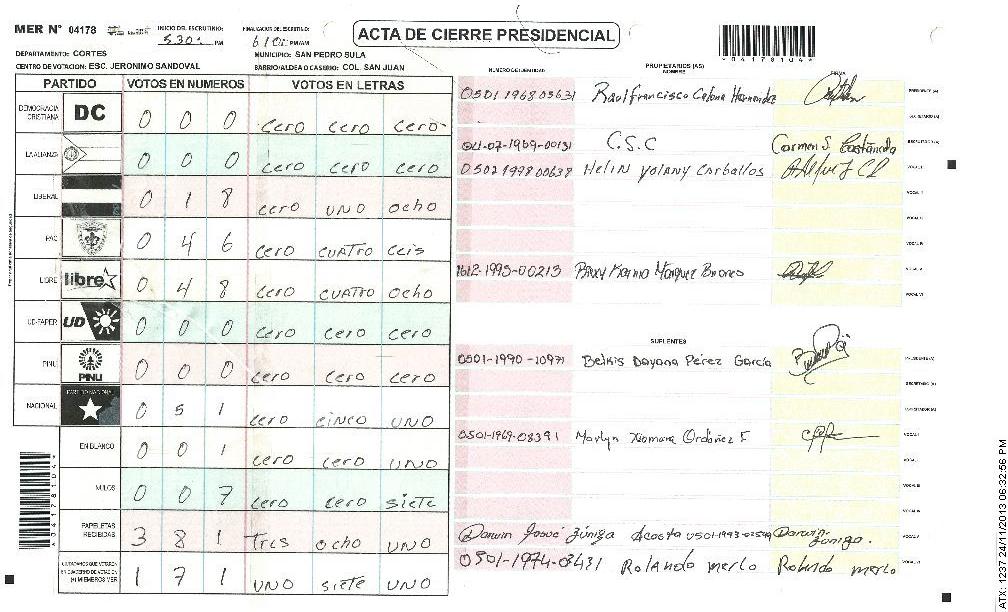 MER N° 04178 INICIO DEL ESCRUTINIO: 5:30 PM FINALIZACION DEL ESCRUTINIO: 6:10 PM/AM
ACTA DE CIERRE PRESIDENCIAL
*04178104*
DEPARTAMENTO: CORTES MUNICIPIO: SAN PEDRO SULA
CENTRO DE VOTACION: ESC. JERONIMO SANDOVAL BARRIO/ALDEA O CASERIO: COL. SAN JUAN
PARTIDO VOTOS EN NUMEROS VOTOS EN LETRAS
DEMOCRACIA CRISTIANA DC 0 0 0 cero cero cero
LA ALIANZA 0 0 0 cero cero cero
LIBERAL 0 1 8 cero uno ocho
PAC 0 4 6 cero cuatro ceis
LIBRE libre 0 4 8 cero cuatro ocho
UD-FAPER UD 0 0 0 cero cero cero
PINU PINU 0 0 0 cero cero cero
NACIONAL PARTIDO NACIONAL 0 5 1 cero cinco uno
EN BLANCO 0 0 1 cero cero uno
NULOS 0 0 7 cero cero siete
PAPELETAS RECIBIDAS 3 8 1 tres ocho uno
CIUDADANOS QUE VOTARON EN CUADERNO DE VOTACION (+) MIEMBROS MER 1 7 1 uno siete uno
*04178104*
NUMERO DE IDENTIDAD PROPIETARIOS (AS) NOMBRE FIRMA
0501 1968 03631 Raul francisco Hernandez PRESIDENTE (A)
SECRETARIO (A)
C.S.C Carmen S Castañeda ESCRUTADOR (A)
0502 1998 00638 Helin yolany Carballos VOCAL I
VOCAL II
VOCAL III
VOCAL IV
1612-1995-00213 Karina Marquez VOCAL V
VOCAL VI
SUPLENTES
0501-1990-10971 Belkis Dayana Pérez García PRESIDENTE (A)
SECRETARIO (A)
ESCRUTADOR (A)
0501-1969-08391 Marlyn Xiomara Ordóñez F VOCAL I
VOCAL II
VOCAL III
VOCAL IV
Darwin Josué Zúniga Acosta Darwin Zúniga. VOCAL V
0501-1974-03431 Rolando merlo Rolando merlo VOCAL VI
ATX: 1237 24/11/2013 06:32:56 PM